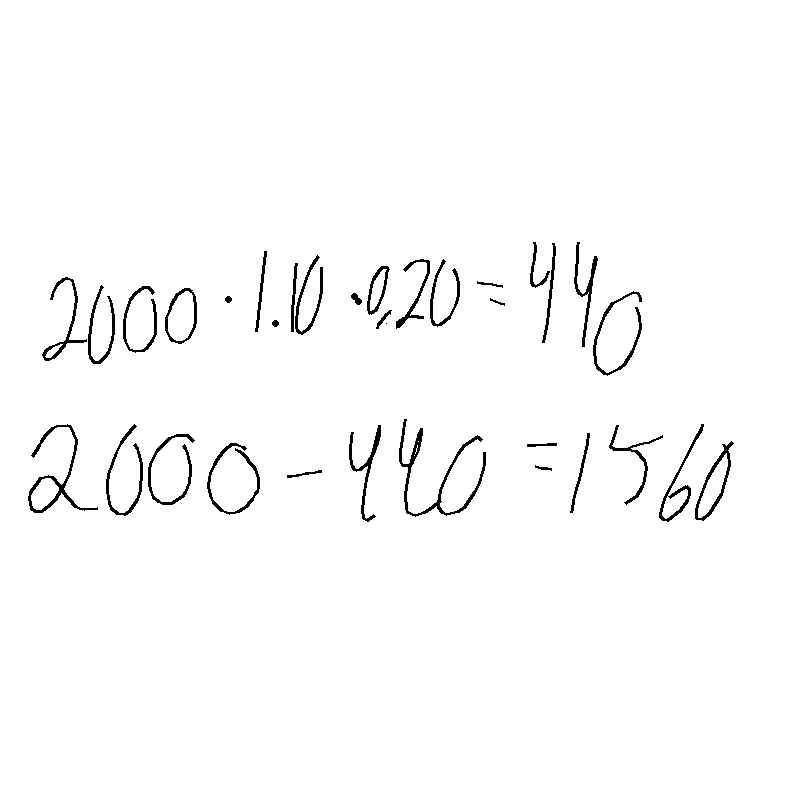 2000 · 1.10 · 0,20 = 440
2000 - 440 = 1560